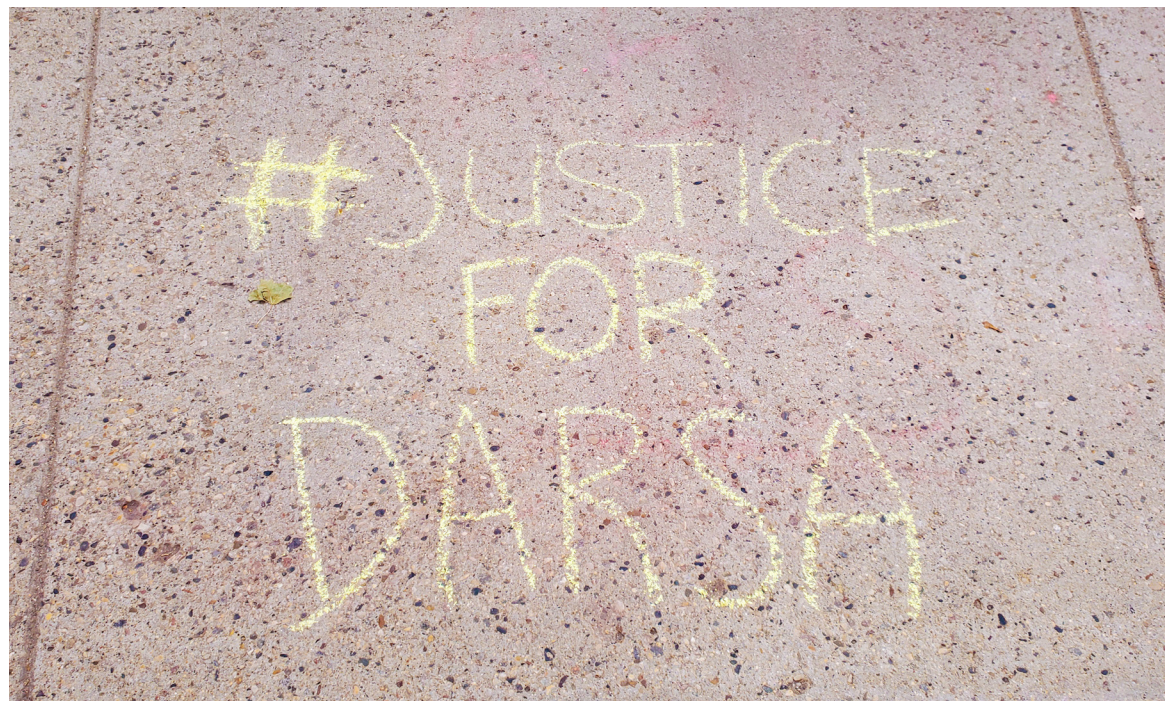 #JUSTICE
FOR
DARSA